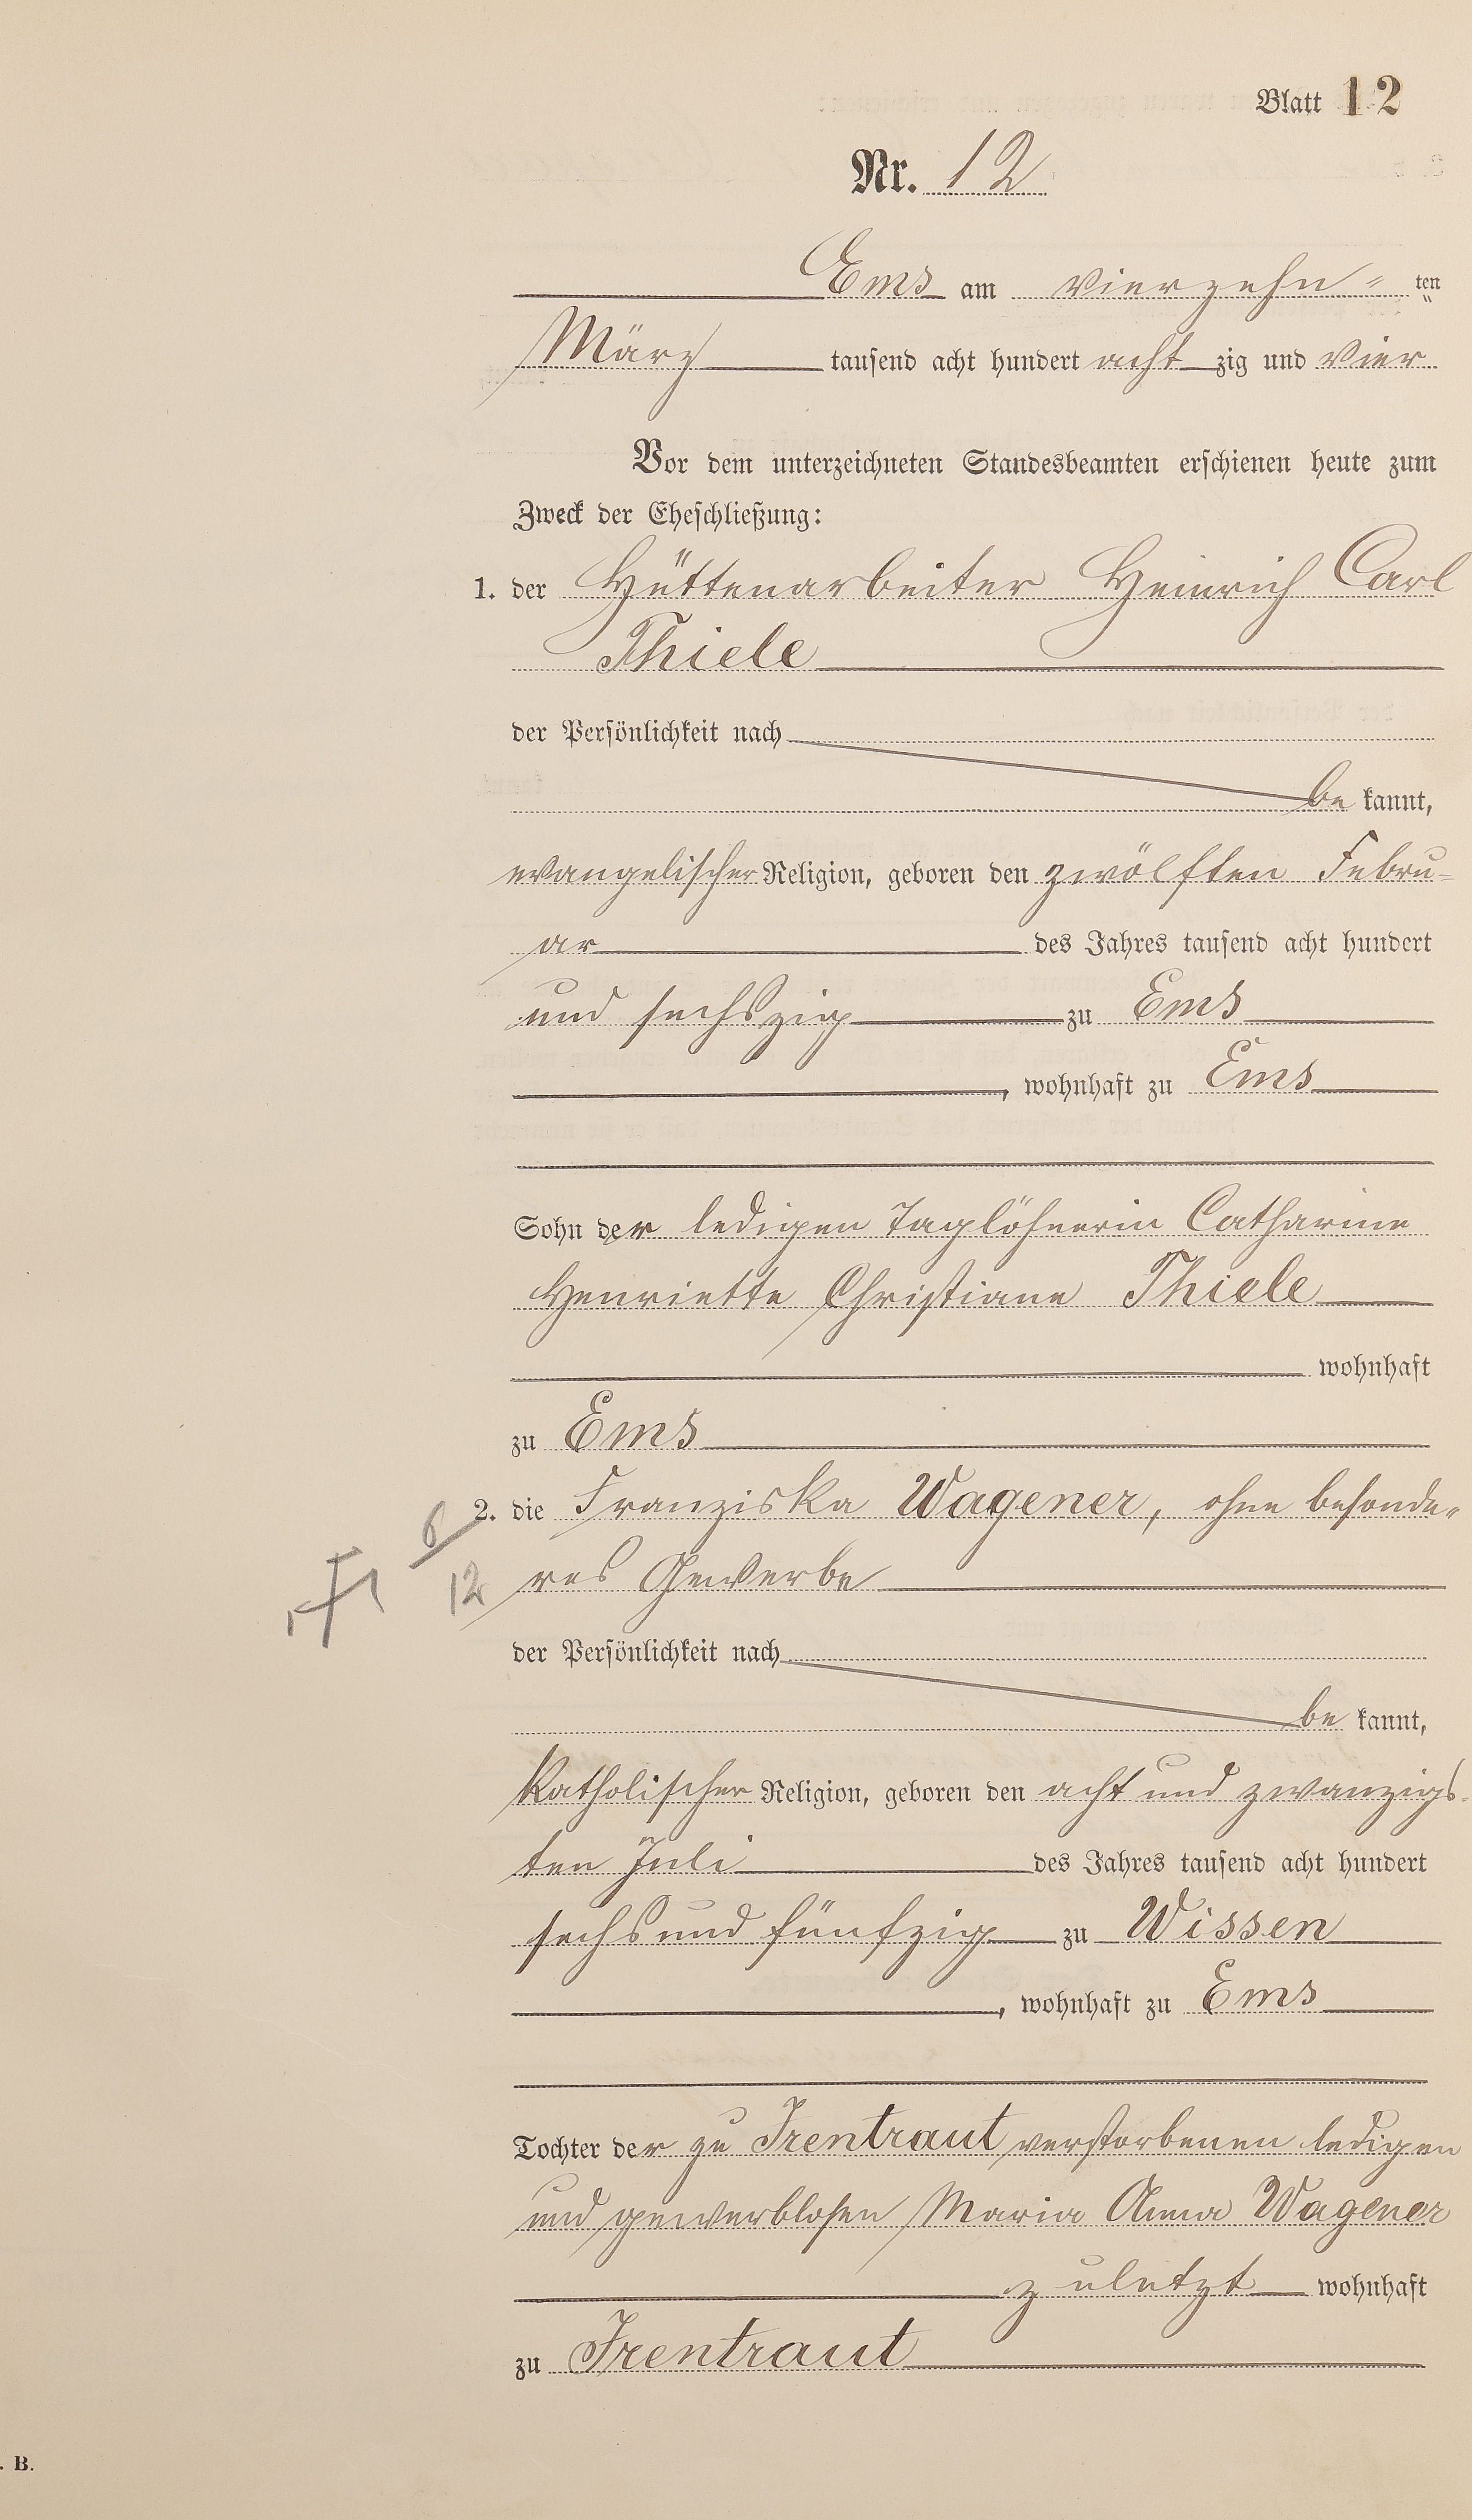 Blatt 12
Nr. 12
Ems am vierzehn- ten
März tausend acht hundert acht zig und vier
Vor dem unterzeichneten Standesbeamten erschienen heute zum
Zweck der Eheschließung:
1. der Hüttenarbeiter Heinrich Carl
Thiele
der Persönlichkeit nach
be kannt,
evangelischer Religion, geboren den zwölften Febru-
ar des Jahres tausend acht hundert
und sechszig zu Ems
, wohnhaft zu Ems
Sohn der ledigen Taglöhnerin Catharine
Henriette Christiane Thiele
wohnhaft
zu Ems
2. die Franziska Wagener, ohne besonde-
res Gewerbe
6/12
der Persönlichkeit nach
be kannt,
katholischer Religion, geboren den acht und zwanzigs-
ten Juli des Jahres tausend acht hundert
sechs und fünfzig zu Wissen
, wohnhaft zu Ems
Tochter der zu Irentraut verstorbenen ledigen
und gewerblosen Maria Anna Wagener
zuletzt wohnhaft
zu Irentraut
. B.